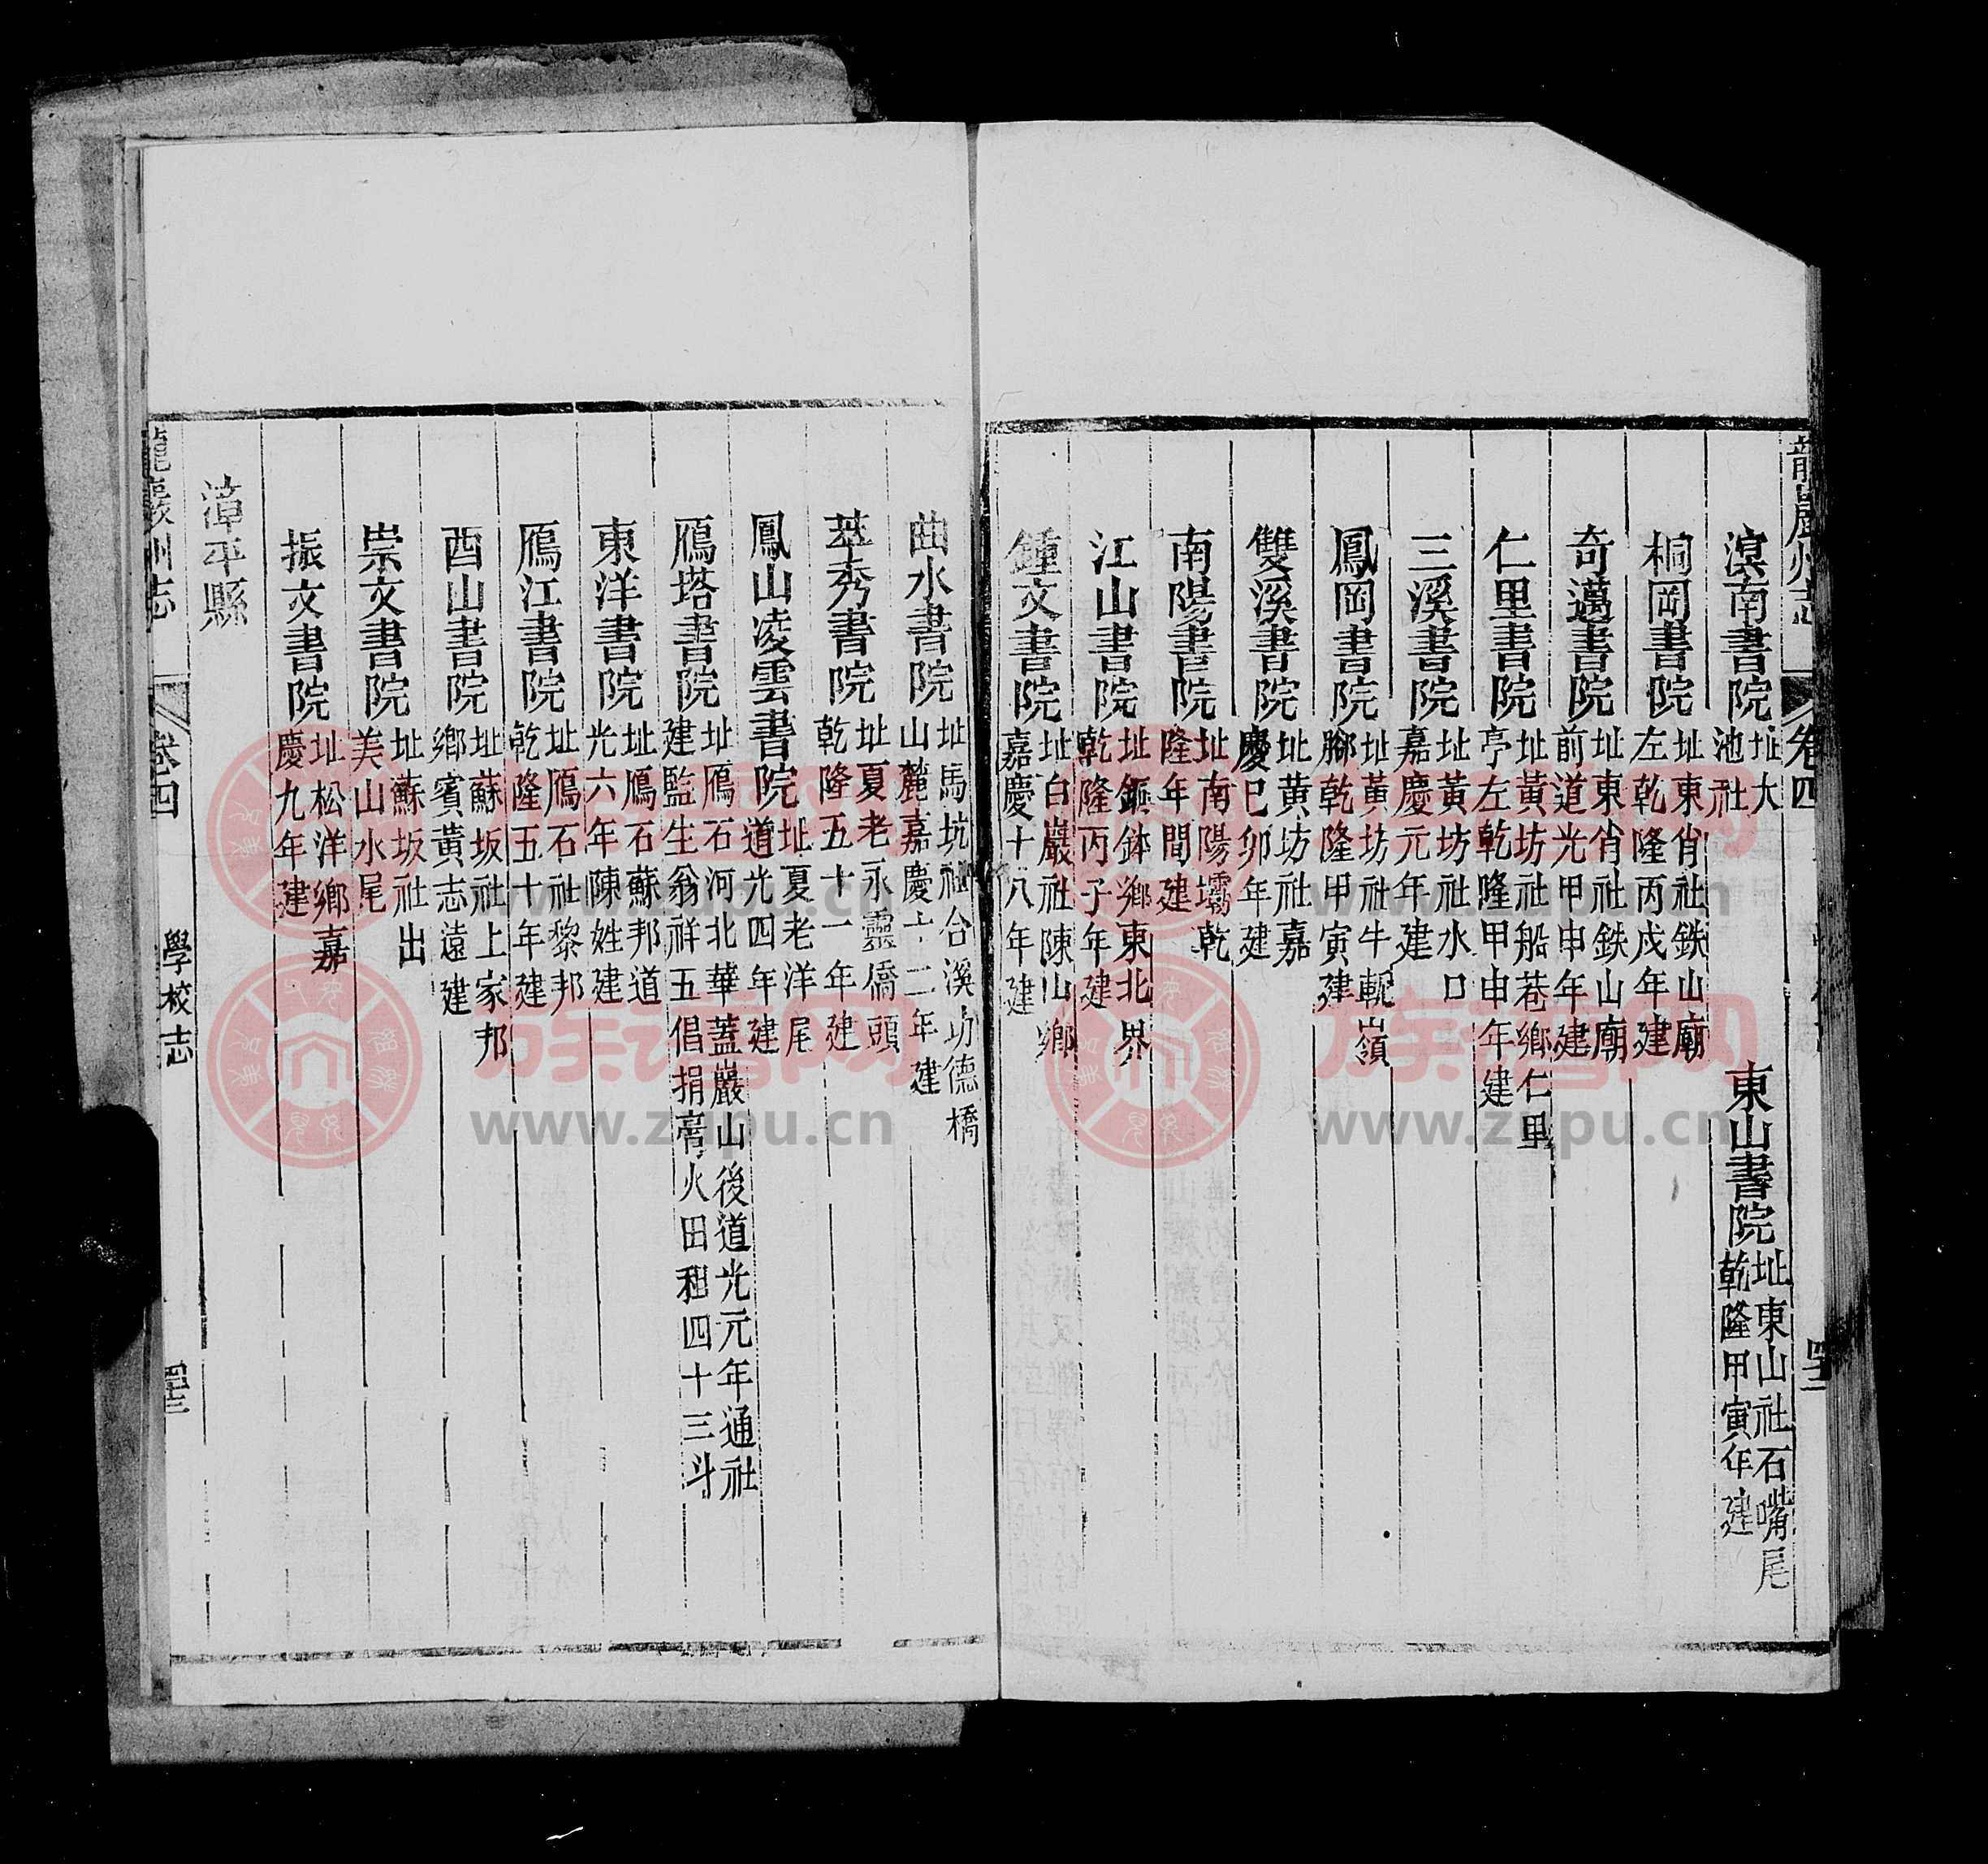 龍巖州志 卷四
溟南書院 址大池社 東山書院 址東山社石嘴尾乾隆甲寅年建
桐岡書院 址東肖社鉄山廟左乾隆丙戌年建
奇邁書院 址東肖社鉄山廟前道光甲申年建
仁里書院 址黃坊社船巷鄉仁里亭左乾隆甲申年建
三溪書院 址黃坊社水口嘉慶元年建
鳳岡書院 址黃坊社牛軛嶺腳乾隆甲寅建
雙溪書院 址黃坊社嘉慶巳卯年建
南陽書院 址南陽壩乾隆年間建
江山書院 址銅鉢鄉東北界乾隆丙子年建
鍾文書院 址白巖社陳山鄉嘉慶十八年建
曲水書院 址馬坑社台溪功德橋山麓嘉慶十二年建
萃秀書院 址夏老永靈僑頭乾隆五十一年建
鳳山凌雲書院 址夏老洋尾道光四年建
鴈塔書院 址鴈石河北華蓋巖山後道光元年通社建監生翁祥五倡捐膏火田租四十三斗
東洋書院 址鴈石蘇邦道光六年陳姓建
鴈江書院 址鴈石社黎邦乾隆五十年建
西山書院 址蘇坂社上家邦鄉賓黃志遠建
崇文書院 址蘇坂社出美山水尾
振文書院 址松洋鄉嘉慶九年建
漳平縣
龍巖州志 卷四 學校志
族谱网
www.zupu.cn